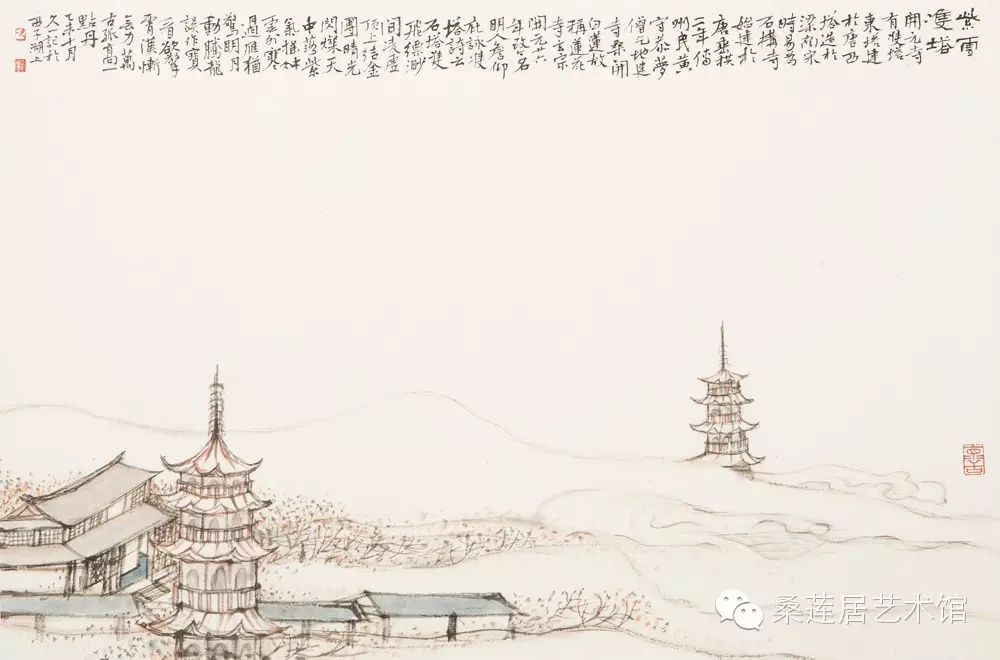 紫雲
雙塔
開元寺
有雙塔
東塔建
於唐西
塔造於
梁初宋
時易為
石構寺
始建於
唐垂拱
二年
州民黃
守恭夢
僧乞地建
寺桑開
白蓮故
稱蓮花
寺玄宗
開元廿六
年改今名
明人詹仰
庇詠雙
塔詩云
石塔雙
飛縹緲
間凌虛
頂上結金
團晴光
閃爍天
中落紫
氣
雲外寒
過雁猶
驚明月
動騰龍
誤作寶
欲擎
霄漢慚
無力萬
古孤高一
點丹
乙未十月
久一記於
西子湖上
桑莲居艺术馆